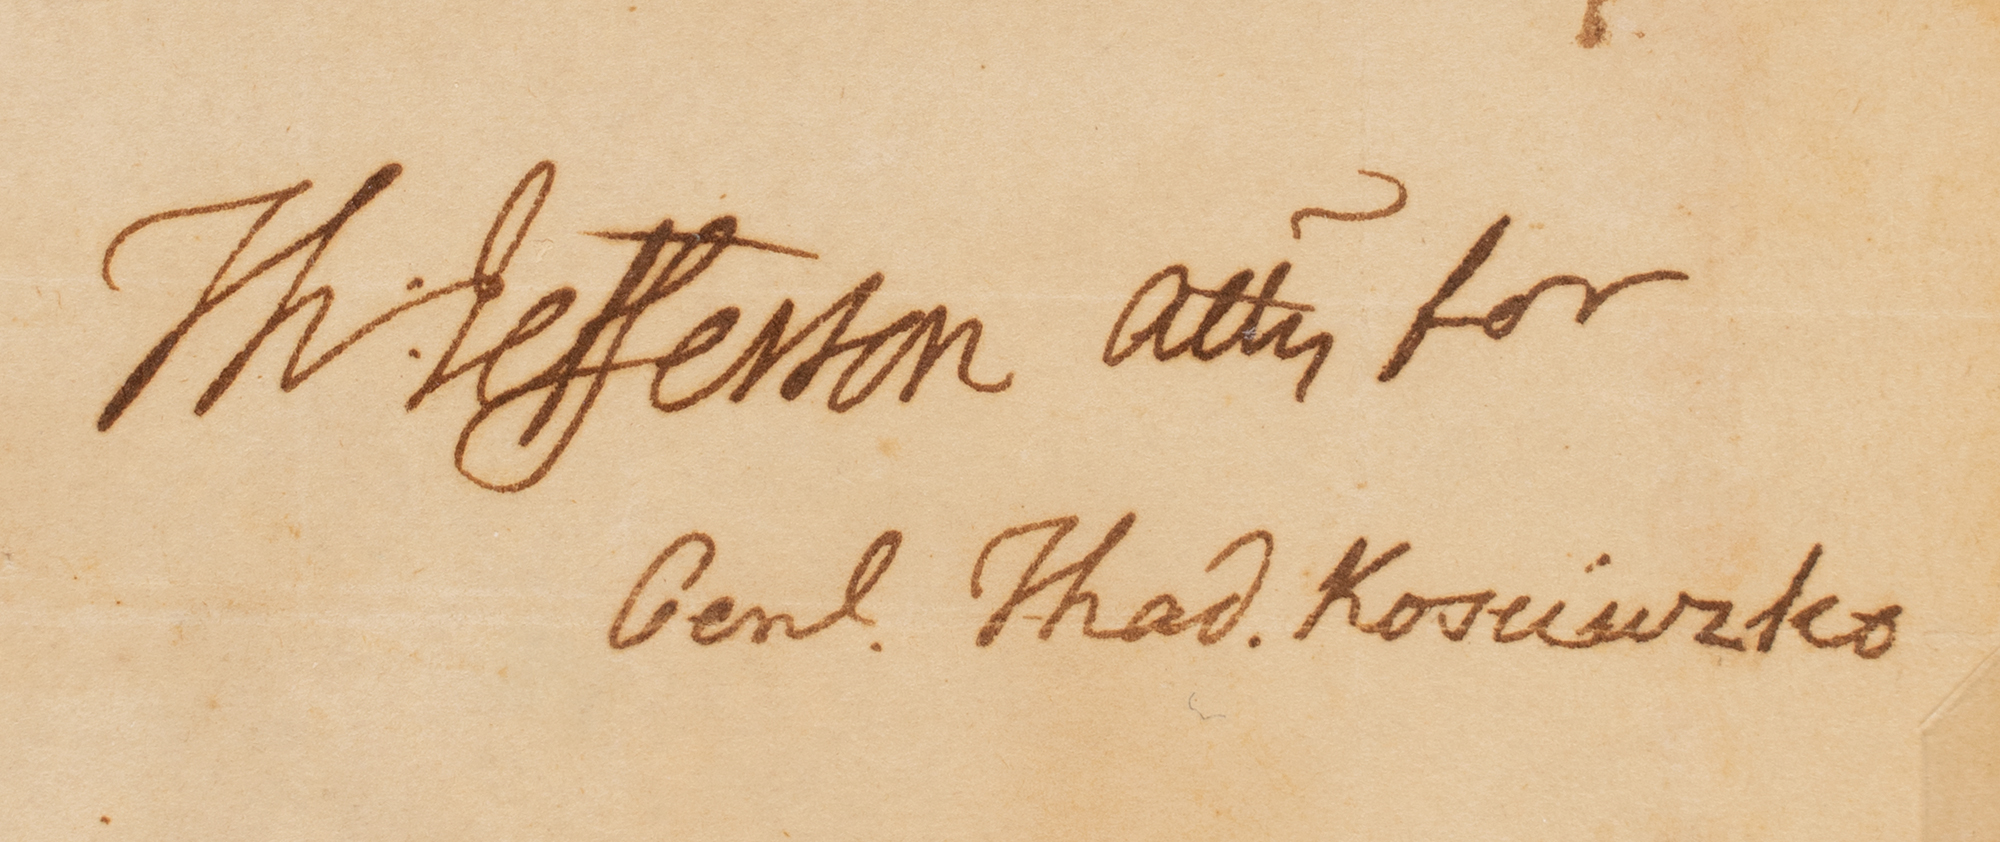 Th: Jefferson atty for
Genl. Thad. Kosciuzko